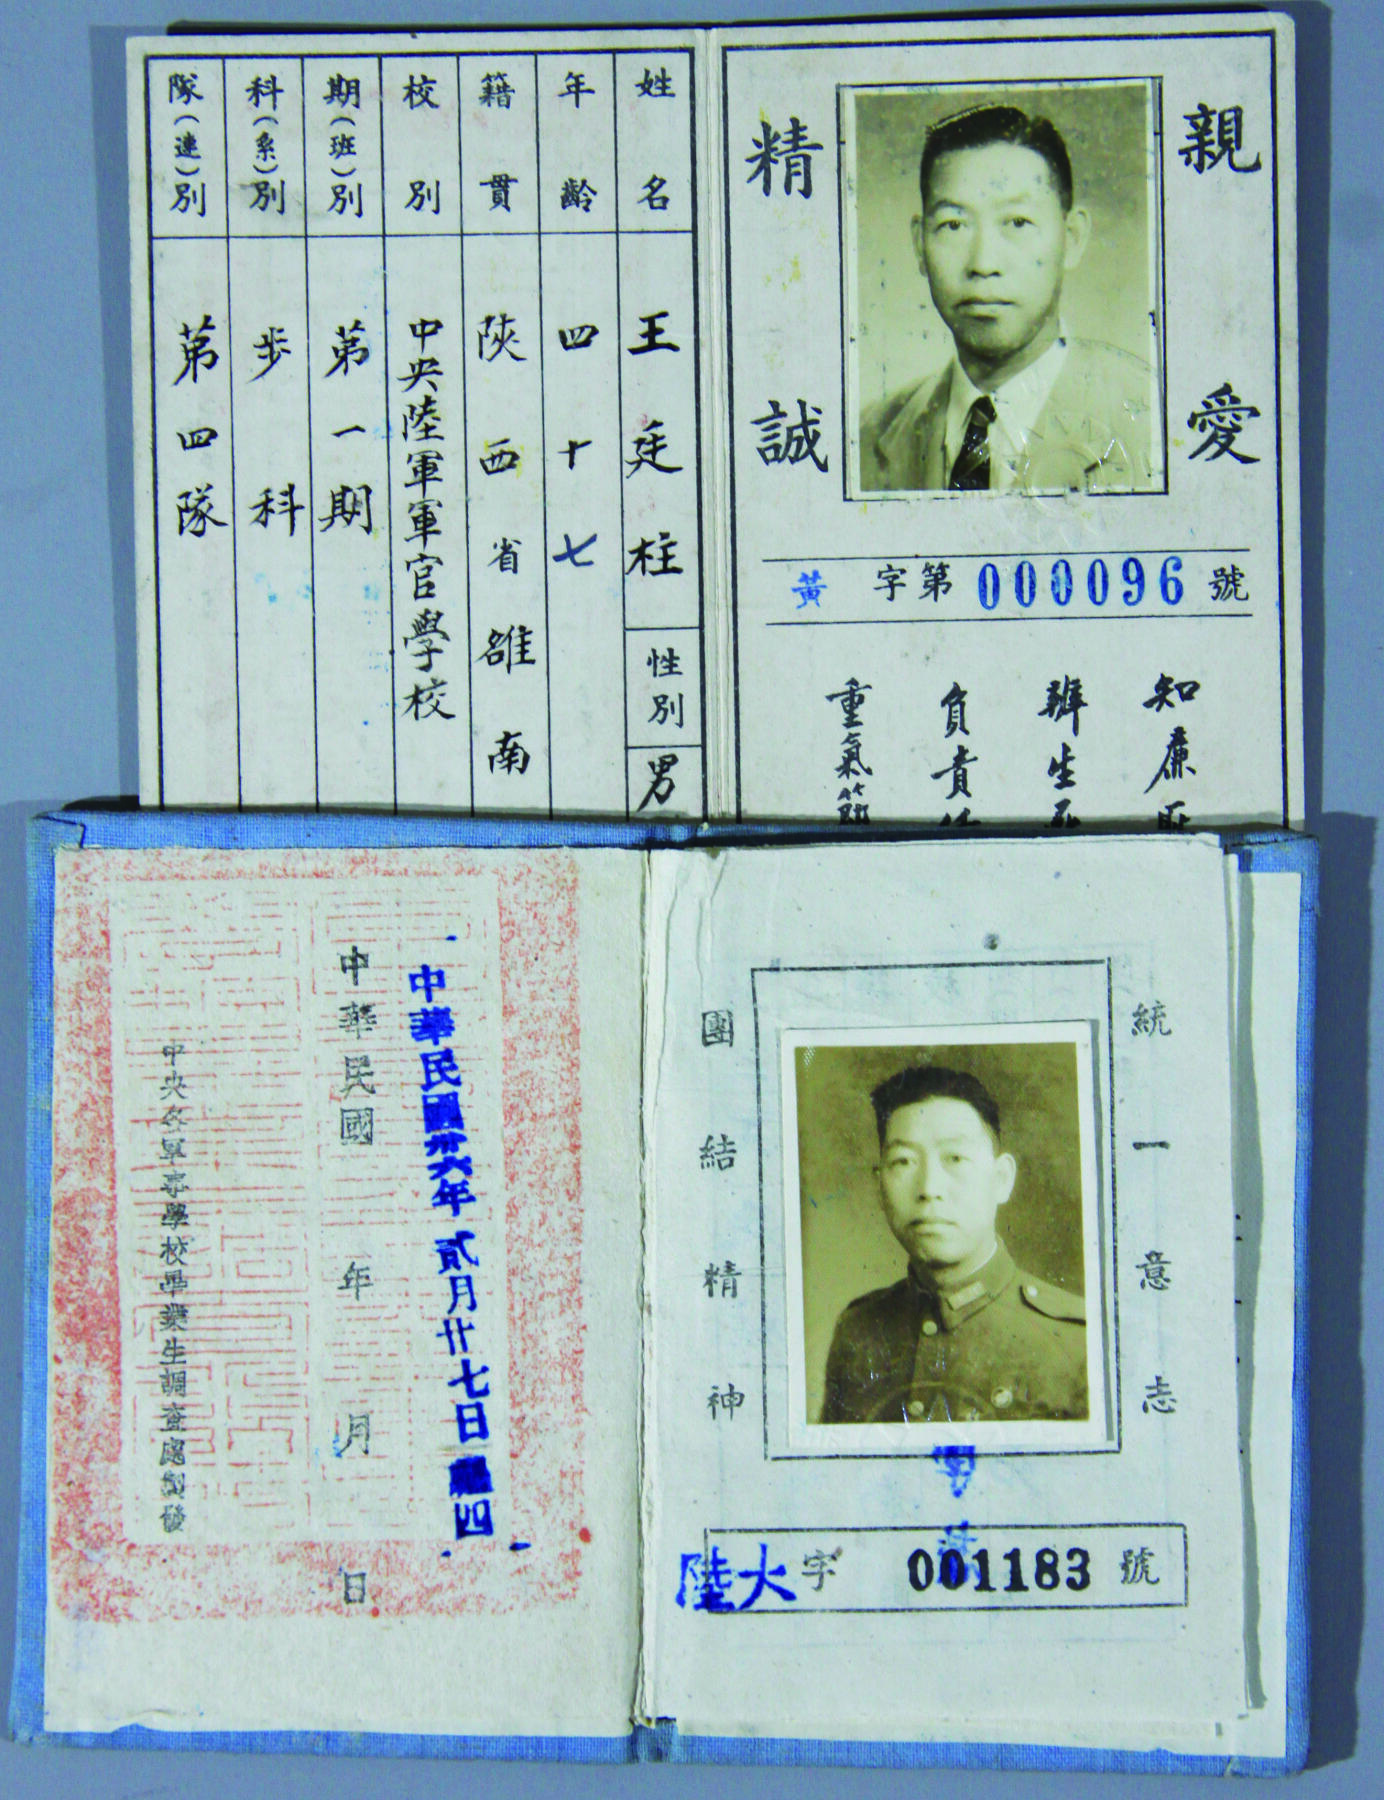 親愛
精誠
黃字第000096號
知廉
辨生
負責
重氣節
姓名
王廷柱
性別
男
年齡
四十七
籍貫
陝西省雒南
校別
中央陸軍軍官學校
期(班)別
第一期
科(系)別
步科
隊(連)別
第四隊
統一意志
團結精神
陸大字001183號
中華民國卅六年貳月廿七日
四
中華民國 年 月 日
中央各軍事學校畢業生調查處製發